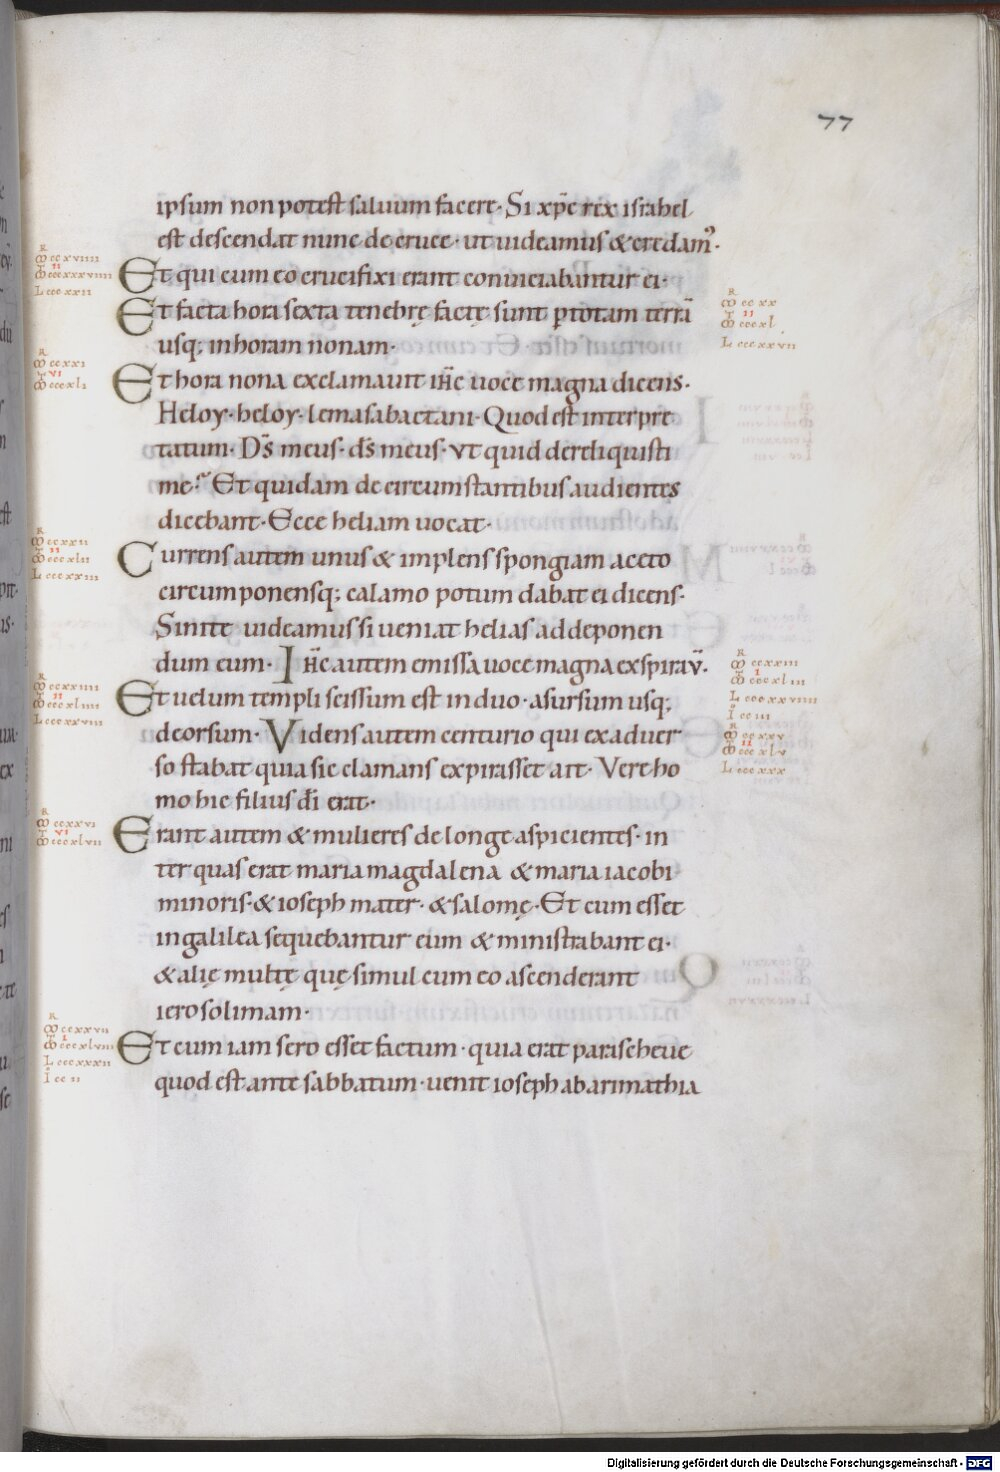 77
ipsum non potest saluum facere· Si xp̄c rex israhel
est descendat nunc de cruce· ut uideamus & credam᷒·
Et qui cum eo crucifixi erant conuiciabantur ei·
Et facta hora sexta tenebrę factę sunt p̲ totam terrā
usq; in horam nonam·
Et hora nona exclamauit ihc̄ uoce magna dicens·
Heloy· heloy· lema sabactani· Quod est interpre
tatum· Ds̄ meus· ds̄ meus· ut quid dereliquisti
me? Et quidam de circumstantibus audientes
dicebant· Ecce heliam uocat·
Currens autem unus & implens spongiam aceto
circumponensq; calamo potum dabat ei dicens·
Sinite uideamus si ueniat helias ad deponen
dum eum· Ihc̄ autem emissa uoce magna exspirav̄·
Et uelum templi scissum est in duo· a sursum usq;
deorsum· Videns autem centurio qui ex aduer
so stabat quia sic clamans expirasset ait· Vere ho
mo hic filius dī erat·
Erant autem & mulieres de longe aspicientes· in
ter quas erat maria magdalena & maria iacobi
minoris· & ioseph mater· & salomę· Et cum esset
in galilea sequebantur eum & ministrabant ei·
& alię multę quę simul cum eo ascenderant
ierosolimam·
Et cum iam sero esset factum· quia erat parascheue
quod est ante sabbatum· uenit ioseph ab arimathia
Digitalisierung gefördert durch die Deutsche Forschungsgemeinschaft - DFG